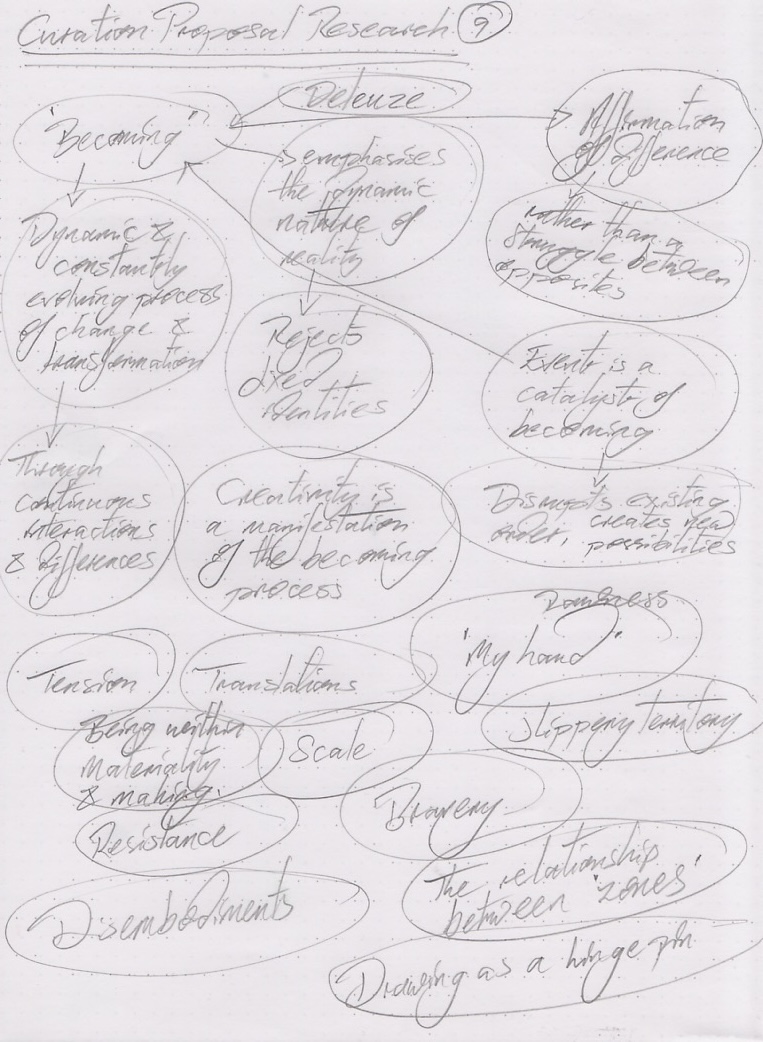 Curation Proposal Research 9
Deleuze
'Becoming'
Affirmation
of difference
rather than a
struggle between
opposites
emphasises
the dynamic
nature of
reality
Dynamic &
constantly
evolving process
of change &
transformation
Rejects
fixed
identities
Event is a
catalyst of
becoming
Through
continuous
interactions
& differences
Creativity is
a manifestation
of the becoming
process
Disrupts existing
order, creates new
possibilities
Tension
Translations
'My hand'
Slippery territory
Being within
Materiality
& making.
Scale
Bravery
Resistance
The relationship
between 'zones'
Disembodiments
Drawing as a hinge pin